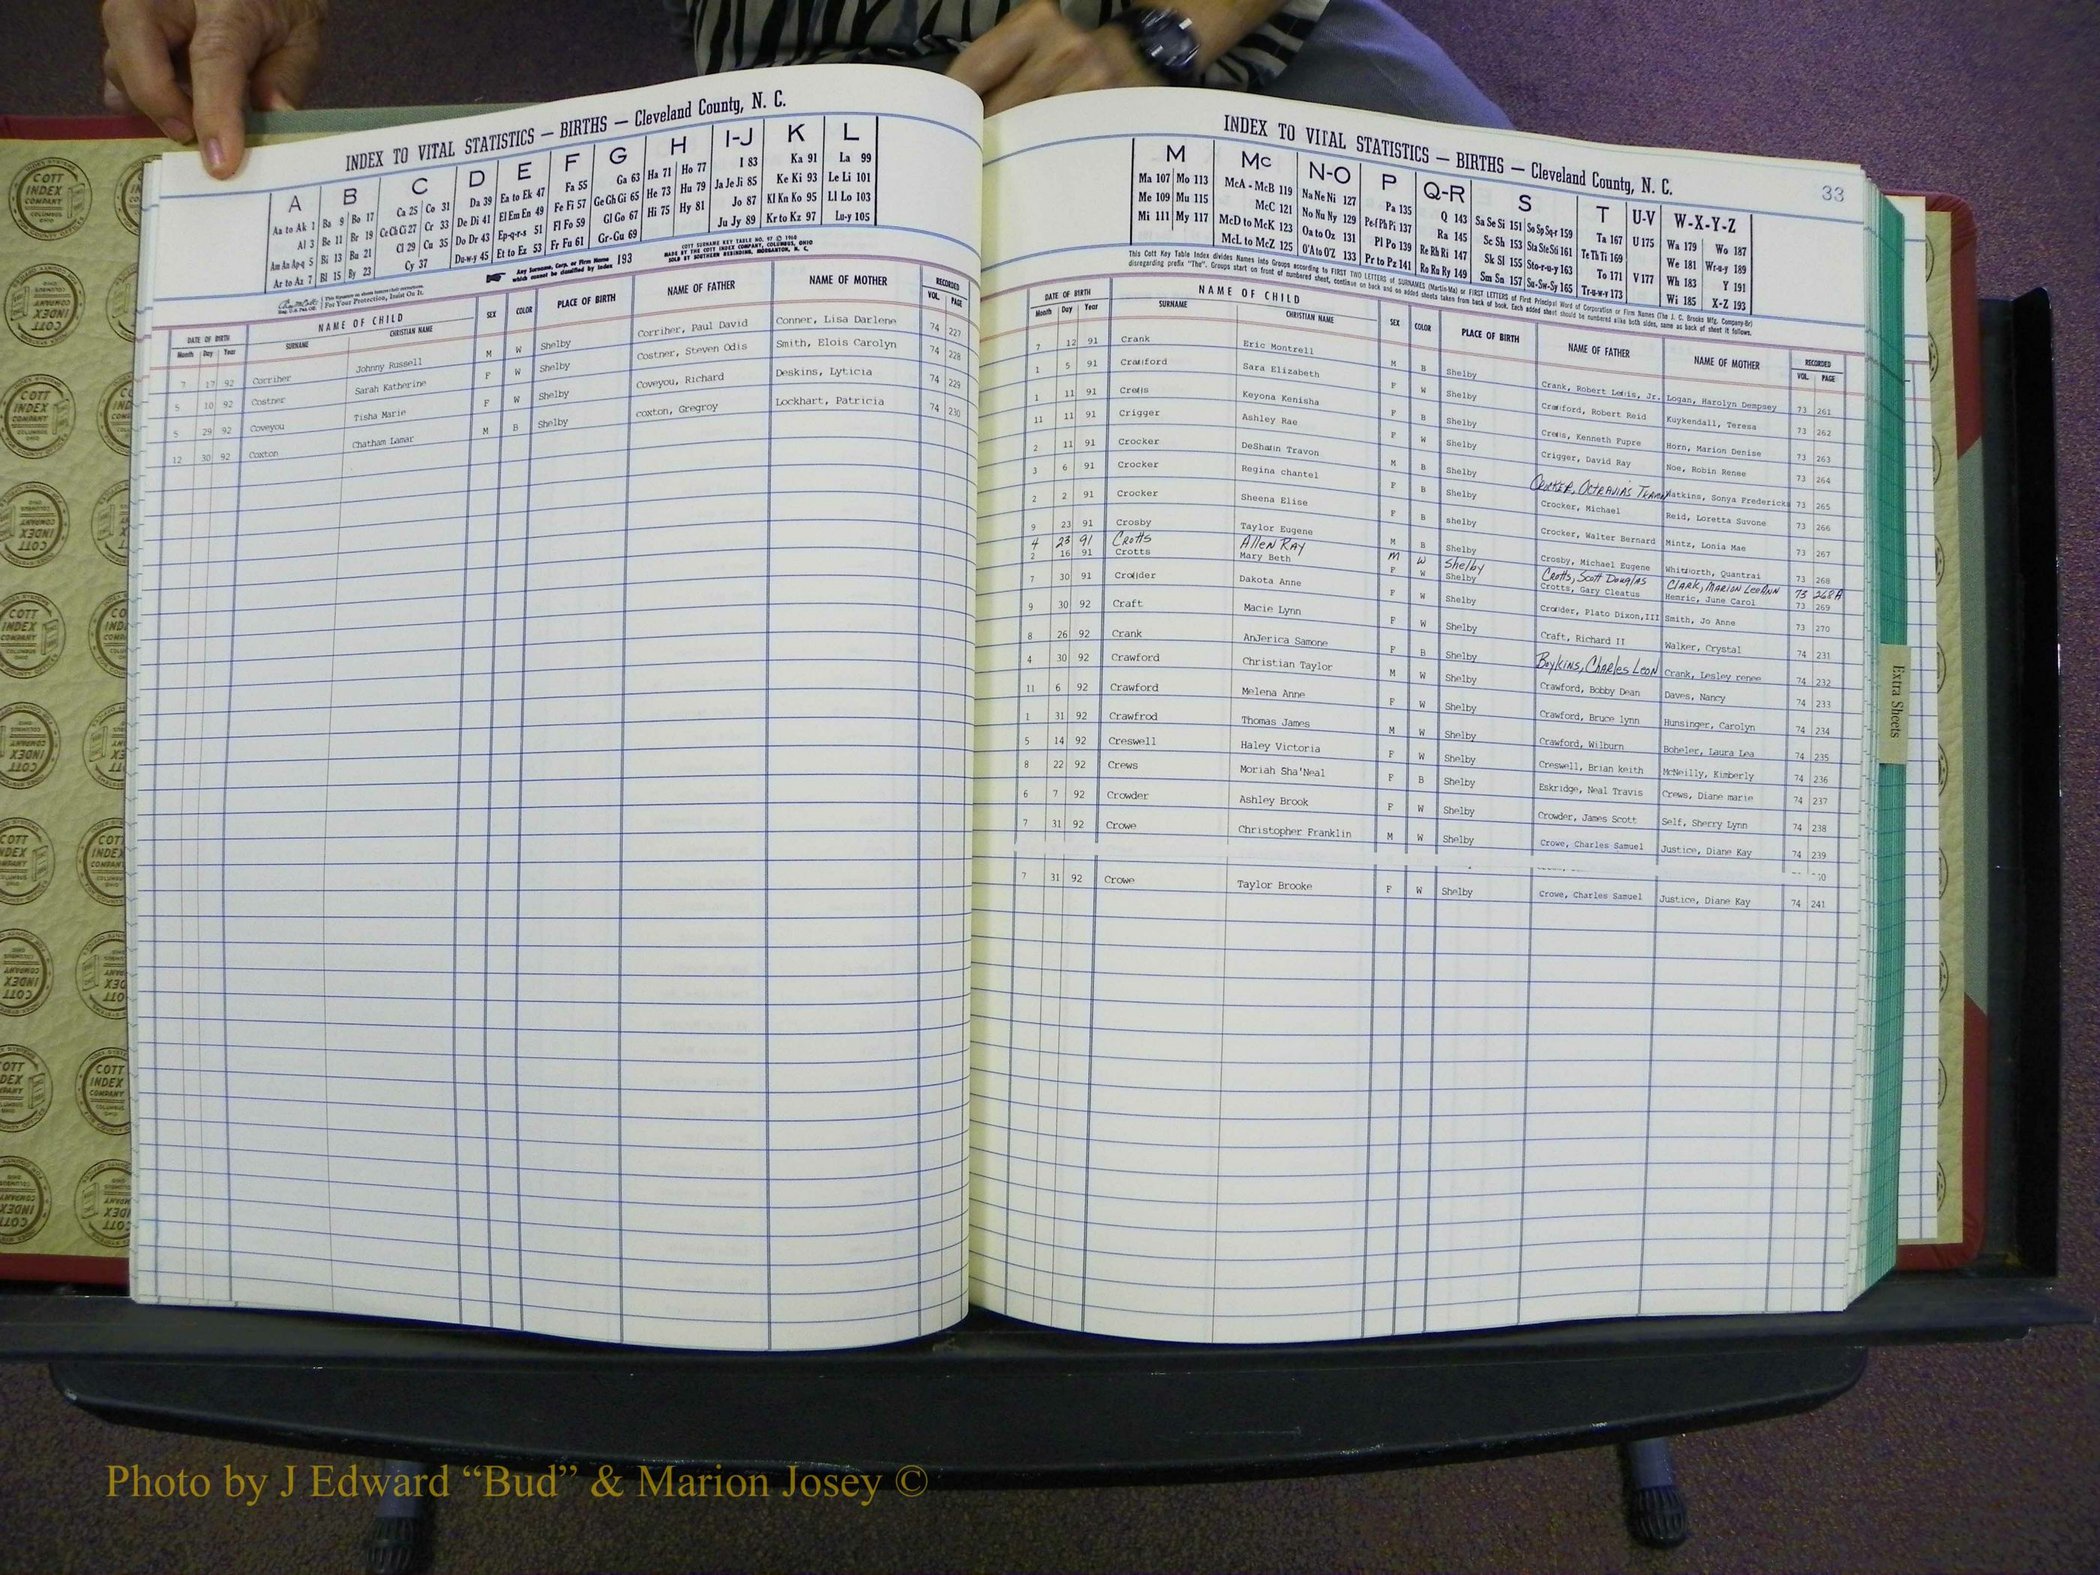 INDEX TO VITAL STATISTICS — BIRTHS — Cleveland County, N. C.
A B C D E F G H I-J K L
Aa to Ak 1 Ba 9 Bo 17 Ca 25 Co 31 Da 39 Ea to Ek 47 Fa 55 Ga 63 Ha 71 Ho 77 I 83 Ka 91 La 99
Al 3 Be 11 Br 19 Ce Ch Ci 27 Cr 33 De Di 41 El Em En 49 Fe Fi 57 Ge Gh Gi 65 He 73 Hu 79 Ja Je Ji 85 Ke Ki 93 Le Li 101
Am An Ap-q 5 Bi 13 Bu 21 Cl 29 Cu 35 Do Dr 43 Ep-q-r-s 51 Fl Fo 59 Gl Go 67 Hi 75 Hy 81 Jo 87 Kl Kn Ko 95 Ll Lo 103
Ar to Az 7 Bl 15 By 23 Cy 37 Du-w-y 45 Et to Ez 53 Fr Fu 61 Gr-Gu 69 Ju Jy 89 Kr to Kz 97 Lu-y 105
For Your Protection, Insist On It.
Any Surname, Corp. or Firm Name which cannot be classified by Index 193
COTT SURNAME KEY TABLE NO. 97 © 1960
MADE BY THE COTT INDEX COMPANY, COLUMBUS, OHIO
SOLD BY SOUTHERN REBINDING, MORGANTON, N. C.
DATE OF BIRTH NAME OF CHILD SEX COLOR PLACE OF BIRTH NAME OF FATHER NAME OF MOTHER RECORDED
Month Day Year SURNAME CHRISTIAN NAME VOL. PAGE
7 17 92 Corriher Johnny Russell M W Shelby Corriher, Paul David Conner, Lisa Darlene 74 227
5 10 92 Costner Sarah Katherine F W Shelby Costner, Steven Odis Smith, Elois Carolyn 74 228
5 29 92 Coveyou Tisha Marie F W Shelby Coveyou, Richard Deskins, Lyticia 74 229
12 30 92 Coxton Chatham Lamar M B Shelby coxton, Gregroy Lockhart, Patricia 74 230
INDEX TO VITAL STATISTICS — BIRTHS — Cleveland County, N. C.
33
M Mc N-O P Q-R S T U-V W-X-Y-Z
Ma 107 Mo 113 McA - McB 119 Na Ne Ni 127 Pa 135 Q 143 Sa Se Si 151 So Sp Sq-r 159 Ta 167 U 175 Wa 179 Wo 187
Me 109 Mu 115 McC 121 No Nu Ny 129 Pe-f Ph Pi 137 Ra 145 Sc Sh 153 Sta Ste Sti 161 Te Th Ti 169 We 181 Wr-u-y 189
Mi 111 My 117 McD to McK 123 Oa to Oz 131 Pl Po 139 Re Rh Ri 147 Sk Sl 155 Sto-r-u-y 163 To 171 V 177 Wh 183 Y 191
McL to McZ 125 O'A to O'Z 133 Pr to Pz 141 Ro Ru Ry 149 Sm Sn 157 Su-Sw-Sy 165 Tr-u-w-y 173 Wi 185 X-Z 193
This Cott Key Table Index divides Names into Groups according to FIRST TWO LETTERS of SURNAMES (Martin-Ma) or FIRST LETTERS of First Principal Word of Corporation or Firm Names (The J. C. Brooks Mfg. Company-Br)
disregarding prefix "The". Groups start on front of numbered sheet, continue on back and on added sheets taken from back of book. Each added sheet should be numbered alike both sides, same as back of sheet it follows.
DATE OF BIRTH NAME OF CHILD SEX COLOR PLACE OF BIRTH NAME OF FATHER NAME OF MOTHER RECORDED
Month Day Year SURNAME CHRISTIAN NAME VOL. PAGE
7 12 91 Crank Eric Montrell M B Shelby Crank, Robert Lewis, Jr. Logan, Harolyn Dempsey 73 261
1 5 91 Crawford Sara Elizabeth F W Shelby Crawford, Robert Reid Kuykendall, Teresa 73 262
1 11 91 Crews Keyona Kenisha F B Shelby Crews, Kenneth Fupre Horn, Marion Denise 73 263
11 11 91 Crigger Ashley Rae F W Shelby Crigger, David Ray Noe, Robin Renee 73 264
2 11 91 Crocker DeShawn Travon M B Shelby Crocker, Octravias Travon Watkins, Sonya Fredericks 73 265
3 6 91 Crocker Regina chantel F B Shelby Crocker, Michael Reid, Loretta Suvone 73 266
2 2 91 Crocker Sheena Elise F B shelby Crocker, Walter Bernard Mintz, Lonia Mae 73 267
9 23 91 Crosby Taylor Eugene M B Shelby Crosby, Michael Eugene Whitworth, Quantrai 73 268
4 23 91 Crotts Allen Ray M W Shelby Crotts, Scott Douglas Clark, Marion LeeAnn 73 268A
2 16 91 Crotts Mary Beth F W Shelby Crotts, Gary Cleatus Hemric, June Carol 73 269
7 30 91 Crowder Dakota Anne F W Shelby Crowder, Plato Dixon,III Smith, Jo Anne 73 270
9 30 92 Craft Macie Lynn F W Shelby Craft, Richard II Walker, Crystal 74 231
8 26 92 Crank AnJerica Samone F B Shelby Boykins, Charles Leon Crank, Lesley renee 74 232
4 30 92 Crawford Christian Taylor M W Shelby Crawford, Bobby Dean Daves, Nancy 74 233
11 6 92 Crawford Melena Anne F W Shelby Crawford, Bruce lynn Hunsinger, Carolyn 74 234
1 31 92 Crawfrod Thomas James M W Shelby Crawford, Wilburn Boheler, Laura Lea 74 235
5 14 92 Creswell Haley Victoria F W Shelby Creswell, Brian keith McNeilly, Kimberly 74 236
8 22 92 Crews Moriah Sha'Neal F B Shelby Eskridge, Neal Travis Crews, Diane marie 74 237
6 7 92 Crowder Ashley Brook F W Shelby Crowder, James Scott Self, Sherry Lynn 74 238
7 31 92 Crowe Christopher Franklin M W Shelby Crowe, Charles Samuel Justice, Diane Kay 74 239
7 31 92 Crowe Taylor Brooke F W Shelby Crowe, Charles Samuel Justice, Diane Kay 74 241
Extra Sheets
COTT INDEX COMPANY COLUMBUS OHIO
Photo by J Edward “Bud” & Marion Josey ©